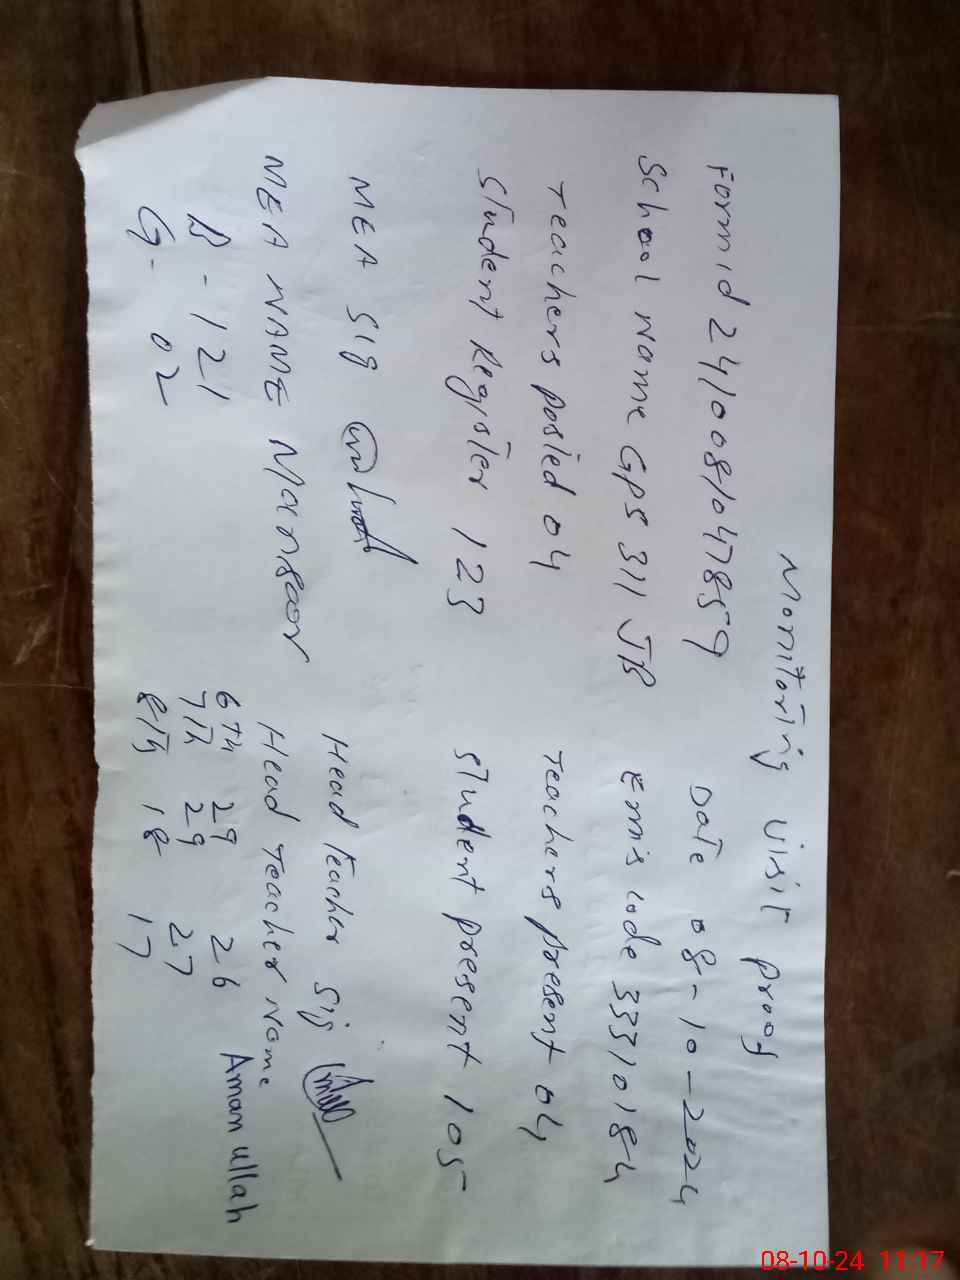 Monitoring visit proof
Formid 2410081047859 Date 08-10-2024
School name GPS 311 JB Emis code 33310184
Teachers posted 04 Teachers present 04
Student Register 123 Student present 105
MEA Sig Head teacher Sig
MEA NAME Mansoor Head Teacher Name Aman ullah
B - 121 6th 29 26
G - 02 7th 29 27
8th 18 17
08-10-24 11:17